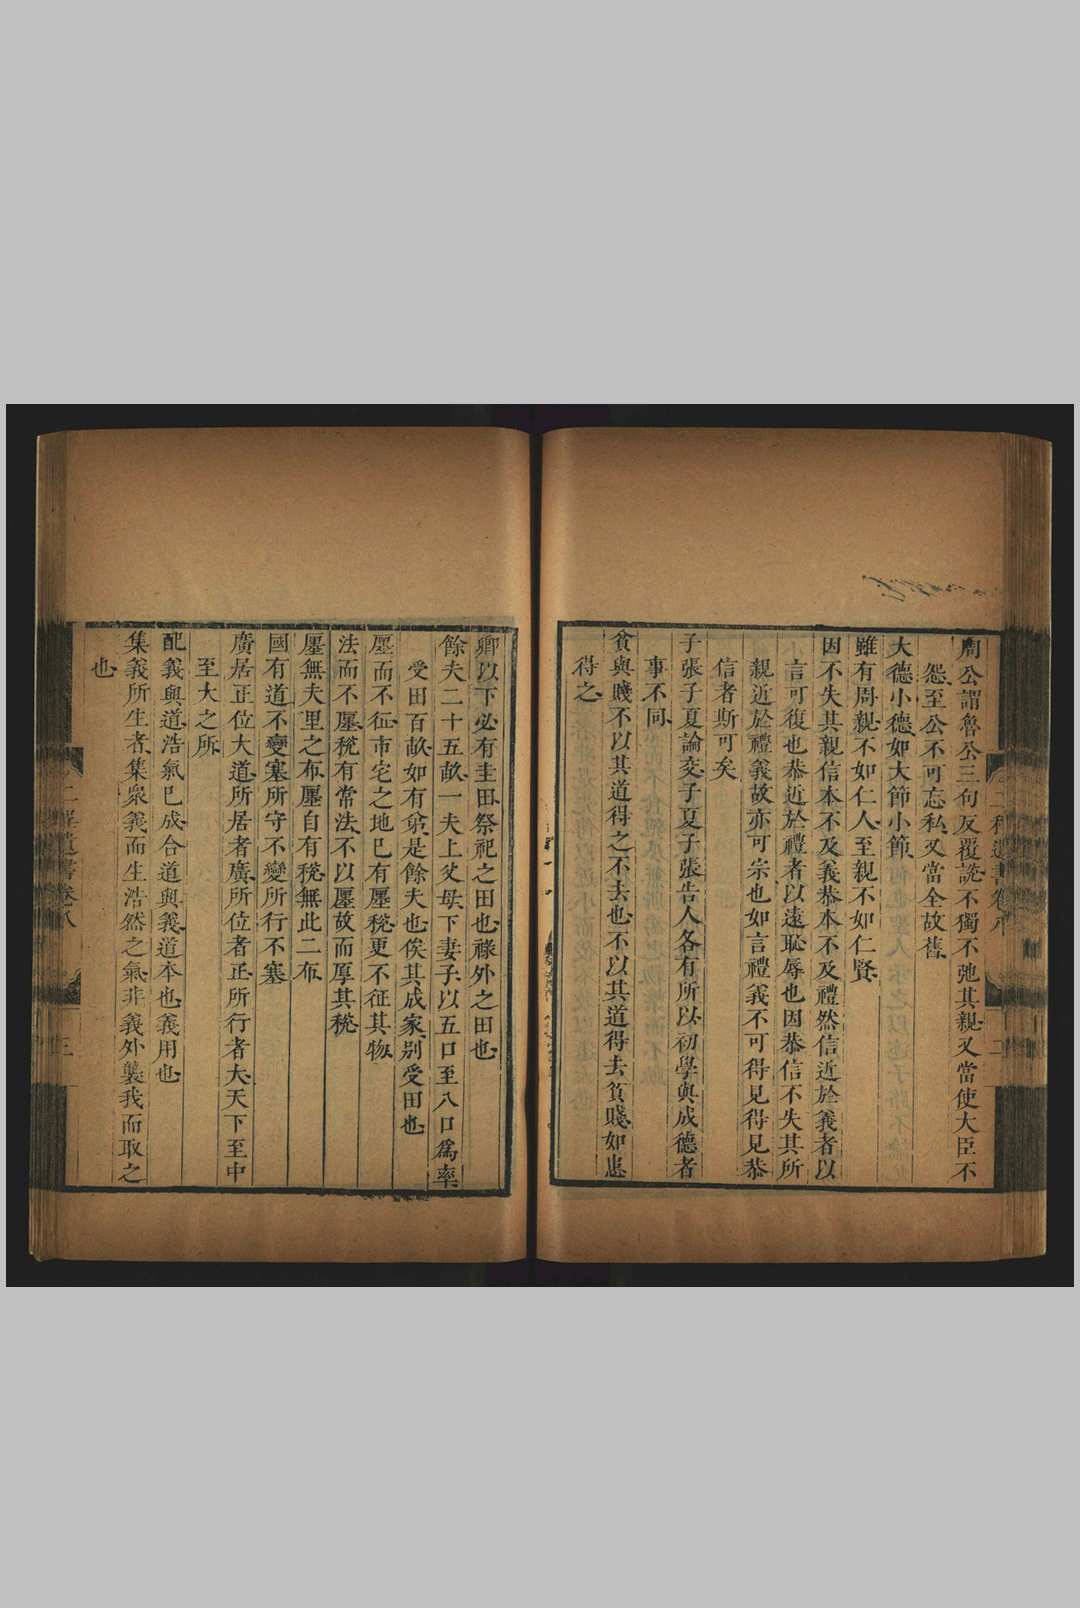 周公謂魯公三句反覆說不獨不弛其親又當使大臣不
怨至公不可忘私又當全故舊
大德小德如大節小節
雖有周親不如仁人至親不如仁賢
因不失其親信本不及義恭本不及禮然信近於義者以
言可復也恭近於禮者以遠恥辱也因恭信不失其所
親近於禮義故亦可宗也如言禮義不可得見得見恭
信者斯可矣
子張子夏論交子夏子張告人各有所以初學與成德者
事不同
貧與賤不以其道得之不去也不以其道得去貧賤如患
得之
卿以下必有圭田祭祀之田也祿外之田也
餘夫二十五畝一夫上父母下妻子以五口至八口爲率
受田百畝如有弟是餘夫也俟其成家別受田也
廛而不征市宅之地已有廛稅更不征其物
法而不廛稅有常法不以廛故而厚其稅
廛無夫里之布廛自有稅無此二布
國有道不變塞所守不變所行不塞
廣居正位大道所居者廣所位者正所行者大天下至中
至大之所
配義與道浩氣已成合道與義道本也義用也
集義所生者集衆義而生浩然之氣非義外襲我而取之
也
二程遺書卷八
三